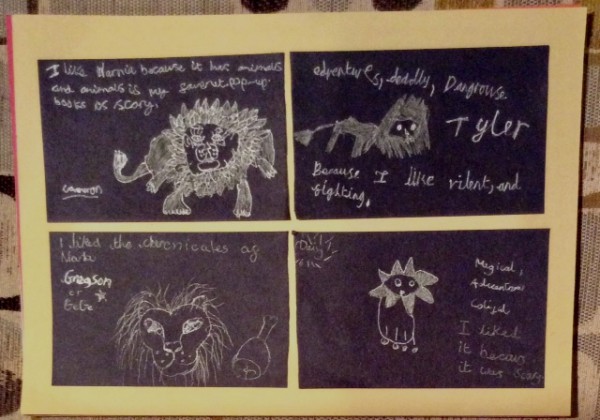 I like Narnie because it has animals
and animals is my faverut pop-up
books is scory.
cameron
adventures, deadly, Dangrouse
Tyler
Because I like vilent, and
fighting.
I liked the chronicales of
Narnia
Gregson
or
Magical,
I liked
it becaus
it was scary